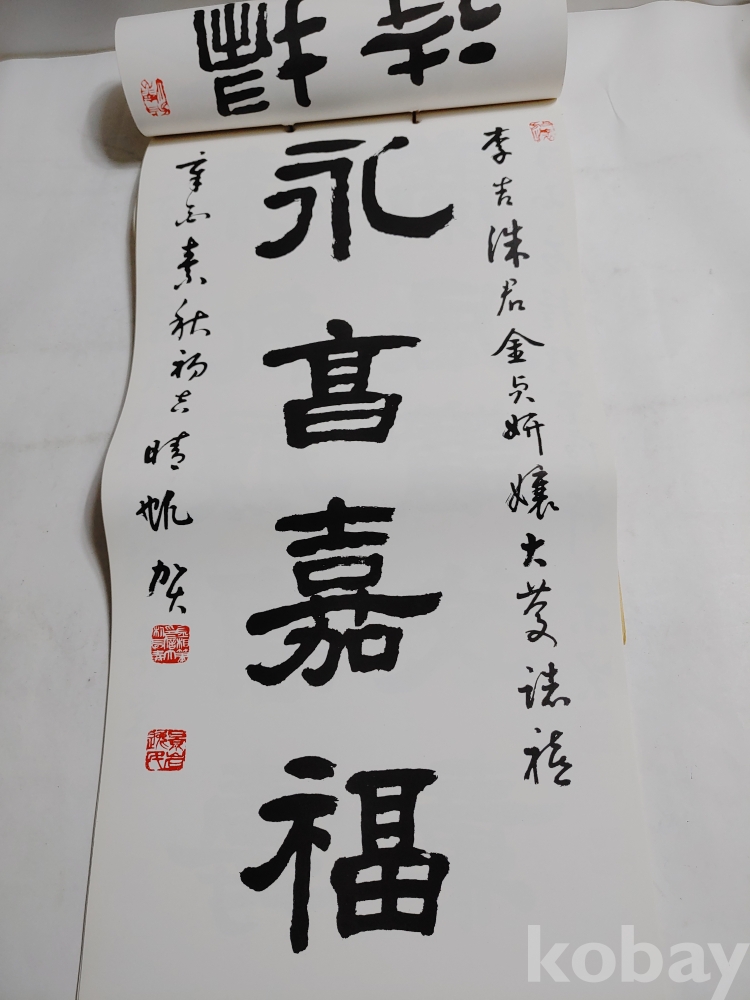 李吉洙君金貞妍孃大慶誌禧
永亯嘉福
辛酉素秋初吉晴帆賀
kobay